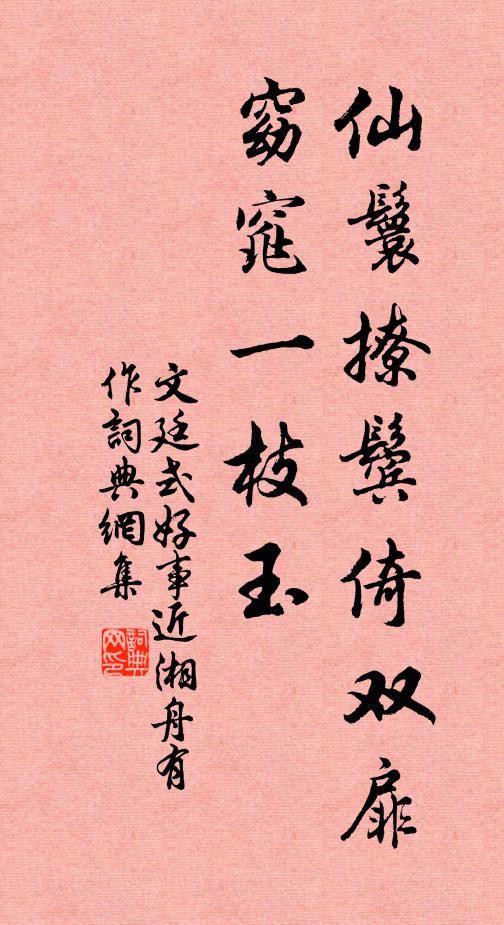 仙鬟撩鬓倚双扉
窈窕一枝玉
文廷式好事近湘舟有
作詞典網集
詞典
网印